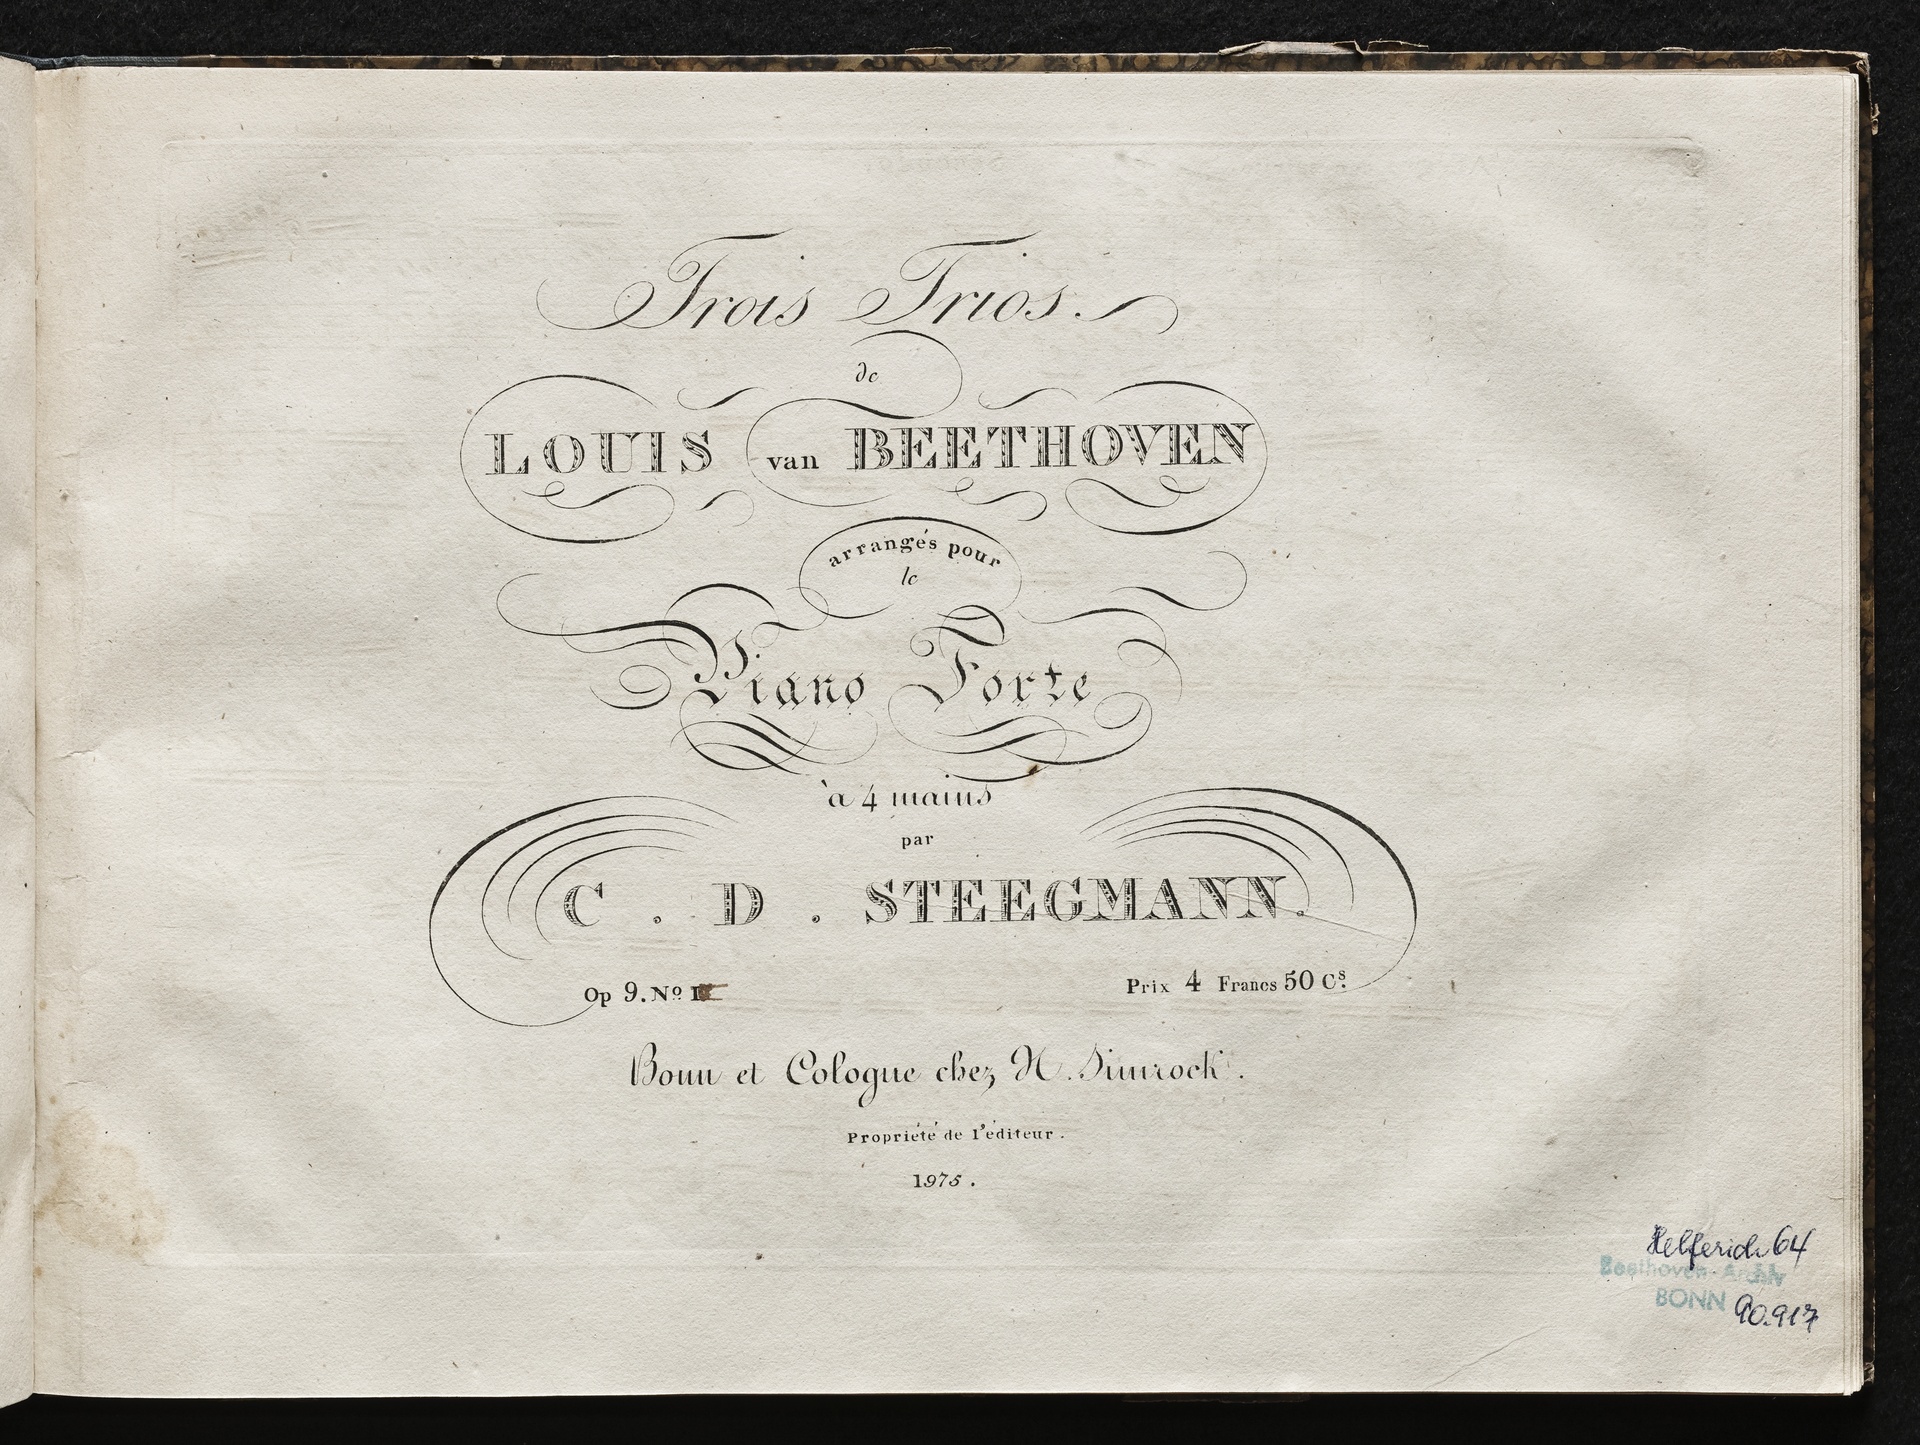 Trois Trios.
de
LOUIS van BEETHOVEN
arrangés pour
le
Piano Forte
à 4 mains
par
C. D. STEEGMANN.
Op 9. No I
Prix 4 Francs 50 Cs.
Bonn et Cologne chez N. Simrock.
Propriété de l'éditeur.
1975.
Helferich 64
Beethoven-Archiv
BONN
90.917